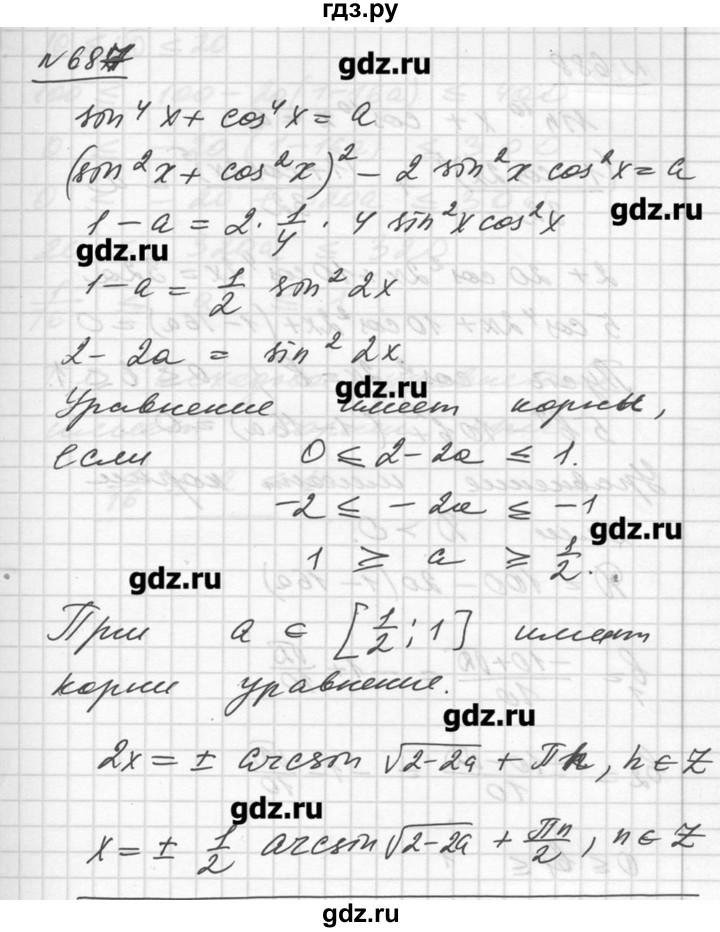 гдз.ру
№687
gdz.ru
sin⁴x + cos⁴x = a
(sin²x + cos²x)² - 2 sin²x cos²x = a
gdz.ru
1 - a = 2 · 1/4 · 4 sin²x cos²x
gdz.ru
1 - a = 1/2 sin² 2x
2 - 2a = sin² 2x.
gdz.ru
Уравнение имеет корни,
если 0 ≤ 2 - 2a ≤ 1.
-2 ≤ - 2a ≤ -1
gdz.ru
1 ≥ a ≥ 1/2.
gdz.ru
При a ∈ [1/2; 1] имеет
корни уравнение.
gdz.ru
2x = ± arcsin √(2-2a) + Πn, n ∈ Z
gdz.ru
x = ± 1/2 arcsin √(2-2a) + Πn/2, n ∈ Z
gdz.ru